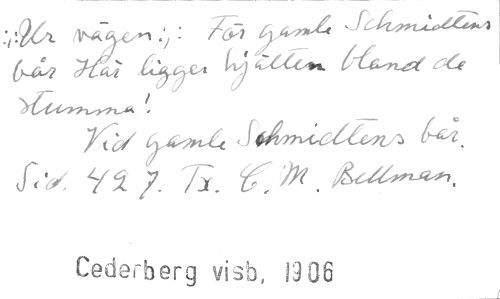 :,: Ur vägen :,: För gamle Schmidtens
bår Här ligger hjälten bland de
stumma!
Vid gamle Schmidtens bår.
Sid. 427. Tx. C. M. Bellman.
Cederberg visb, 1906